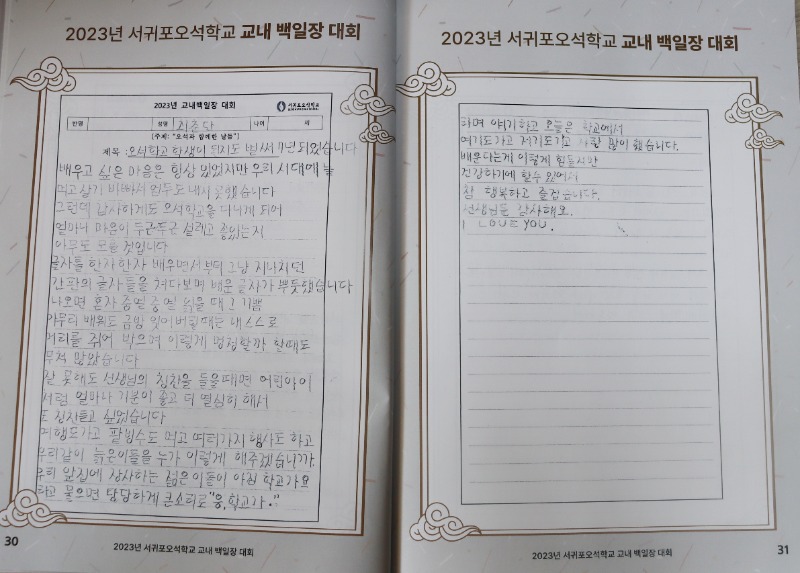 2023년 서귀포오석학교 교내 백일장 대회
2023년 교내백일장 대회
서귀포오석학교
반명
성명
나이
세
(주제: "오석과 함께한 날들")
제목: 오석학교 학생이 된지도 벌써 4년 되었습니다
배우고 싶은 마음은 항상 있었지만 우리 시대에 늘
먹고살기 바빠서 엄두도 내지 못했습니다
그런데 감사하게도 오석학교를 다니게 되어
얼마나 마음이 두근두근 설레고 좋았는지
아무도 모를 것입니다
글자를 한자한자 배우면서부터 그냥 지나치던
간판의 글자들을 쳐다보며 배운 글자가 뿌듯했습니다
나오면 혼자 중얼 중얼 읽을 때 그 기쁨
아무리 배워도 금방 잊어버릴때는 내 스스로
머리를 쥐어 박으며 이렇게 멍청할까 한때도
무척 많았습니다
잘 못해도 선생님의 칭찬을 들을때면 어린아이
처럼 얼마나 기분이 좋고 더 열심히 해서
또 칭찬듣고 싶었습니다
여행도가고 팥빙수도 먹고 여러가지 행사도 하고
우리같이 늙은이들을 누가 이렇게 해주겠습니까
우리 앞집에 장사하는 젊은이들이 아침 학교가요
라고 물으면 당당하게 큰소리로 "응, 학교가."
30
2023년 서귀포오석학교 교내 백일장 대회
2023년 서귀포오석학교 교내 백일장 대회
하며 얘기하고 오늘은 학교에서
여기도가고 저기도가고 자랑 많이 했습니다.
배운다는게 이렇게 힘들지만
건강하기에 할수 있어서
참 행복하고 즐겁습니다.
선생님들 감사해요.
I LOVE YOU.
2023년 서귀포오석학교 교내 백일장 대회
31